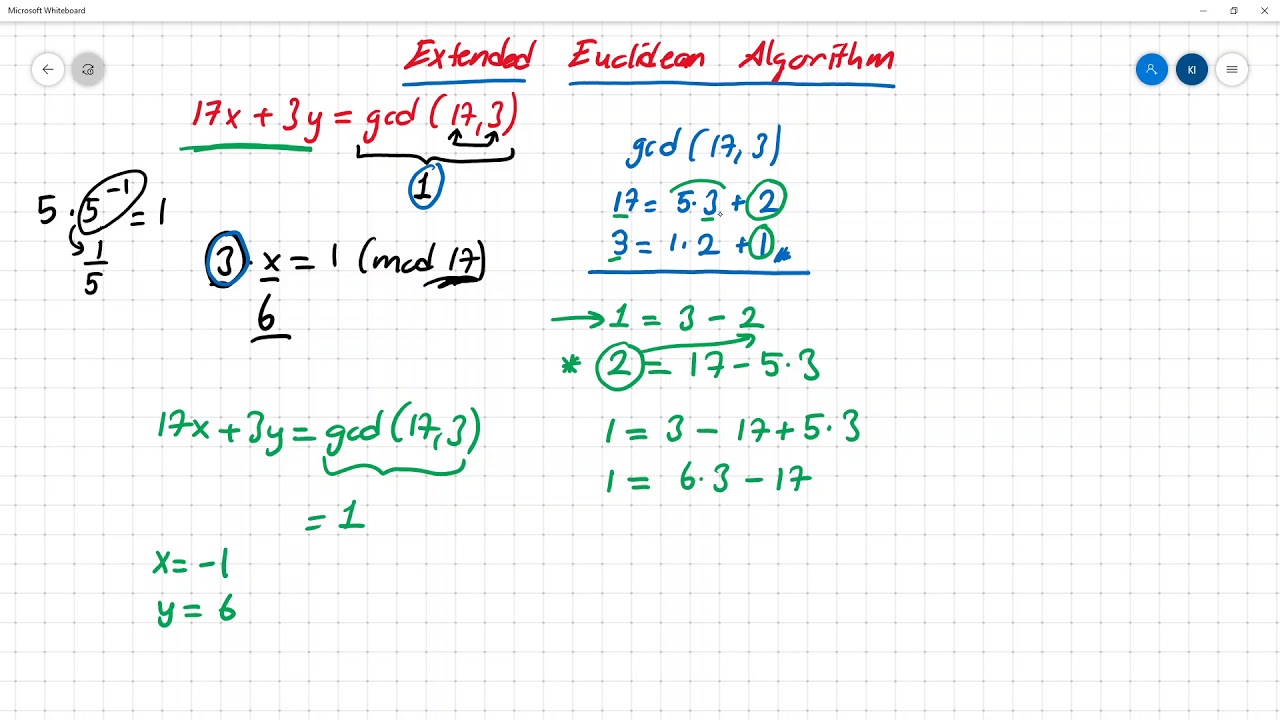 Microsoft Whiteboard
Extended Euclidean Algorithm
KI
17x + 3y = gcd (17,3)
1
5 · 5^-1 = 1
1
5
3 · x = 1 (mod 17)
6
gcd (17, 3)
17 = 5·3 + 2
3 = 1·2 + 1
→ 1 = 3 − 2
* 2 = 17 − 5·3
1 = 3 − 17 + 5·3
1 = 6·3 − 17
17x + 3y = gcd (17,3)
= 1
x = -1
y = 6